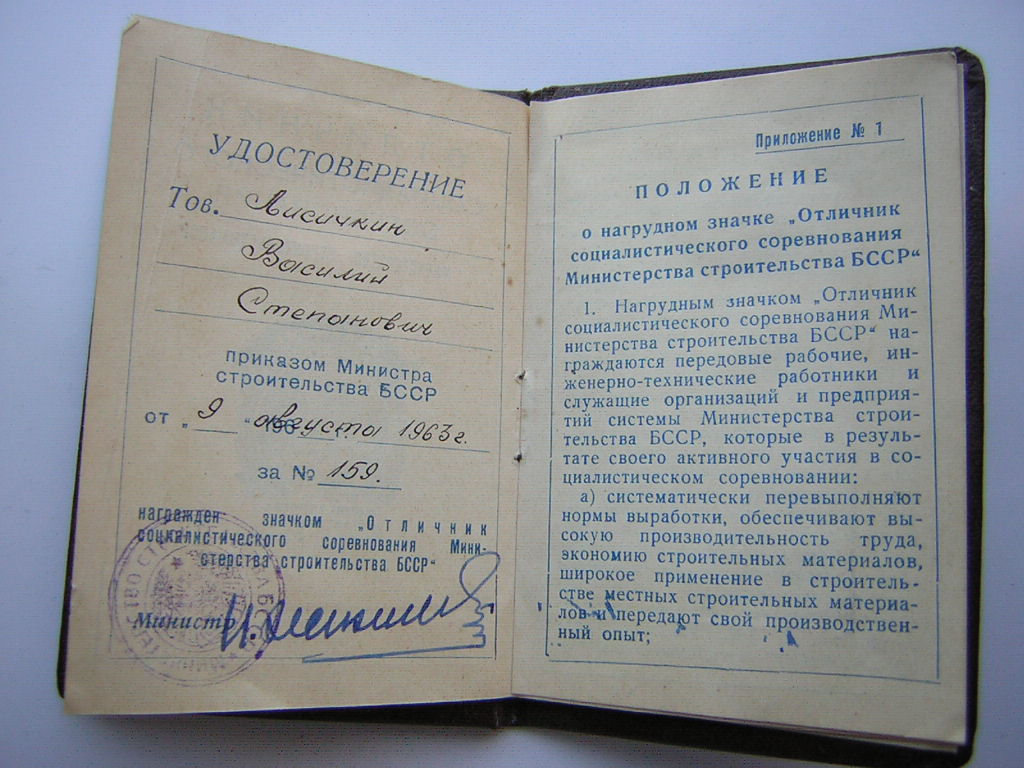 УДОСТОВЕРЕНИЕ
Тов. Лисичкин
Василий
Степанович
приказом Министра
строительства БССР
от „ 9 “ августа 1963 г.
за № 159.
награжден значком „Отличник
социалистического соревнования Мини-
стерства строительства БССР“
Министр
Приложение № 1
ПОЛОЖЕНИЕ
о нагрудном значке „Отличник
социалистического соревнования
Министерства строительства БССР“
1. Нагрудным значком „Отличник
социалистического соревнования Ми-
нистерства строительства БССР“ на-
граждаются передовые рабочие, ин-
женерно-технические работники и
служащие организаций и предприя-
тий системы Министерства строи-
тельства БССР, которые в резуль-
тате своего активного участия в со-
циалистическом соревновании:
а) систематически перевыполняют
нормы выработки, обеспечивают вы-
сокую производительность труда,
экономию строительных материалов,
широкое применение в строитель-
стве местных строительных материа-
лов и передают свой производствен-
ный опыт;